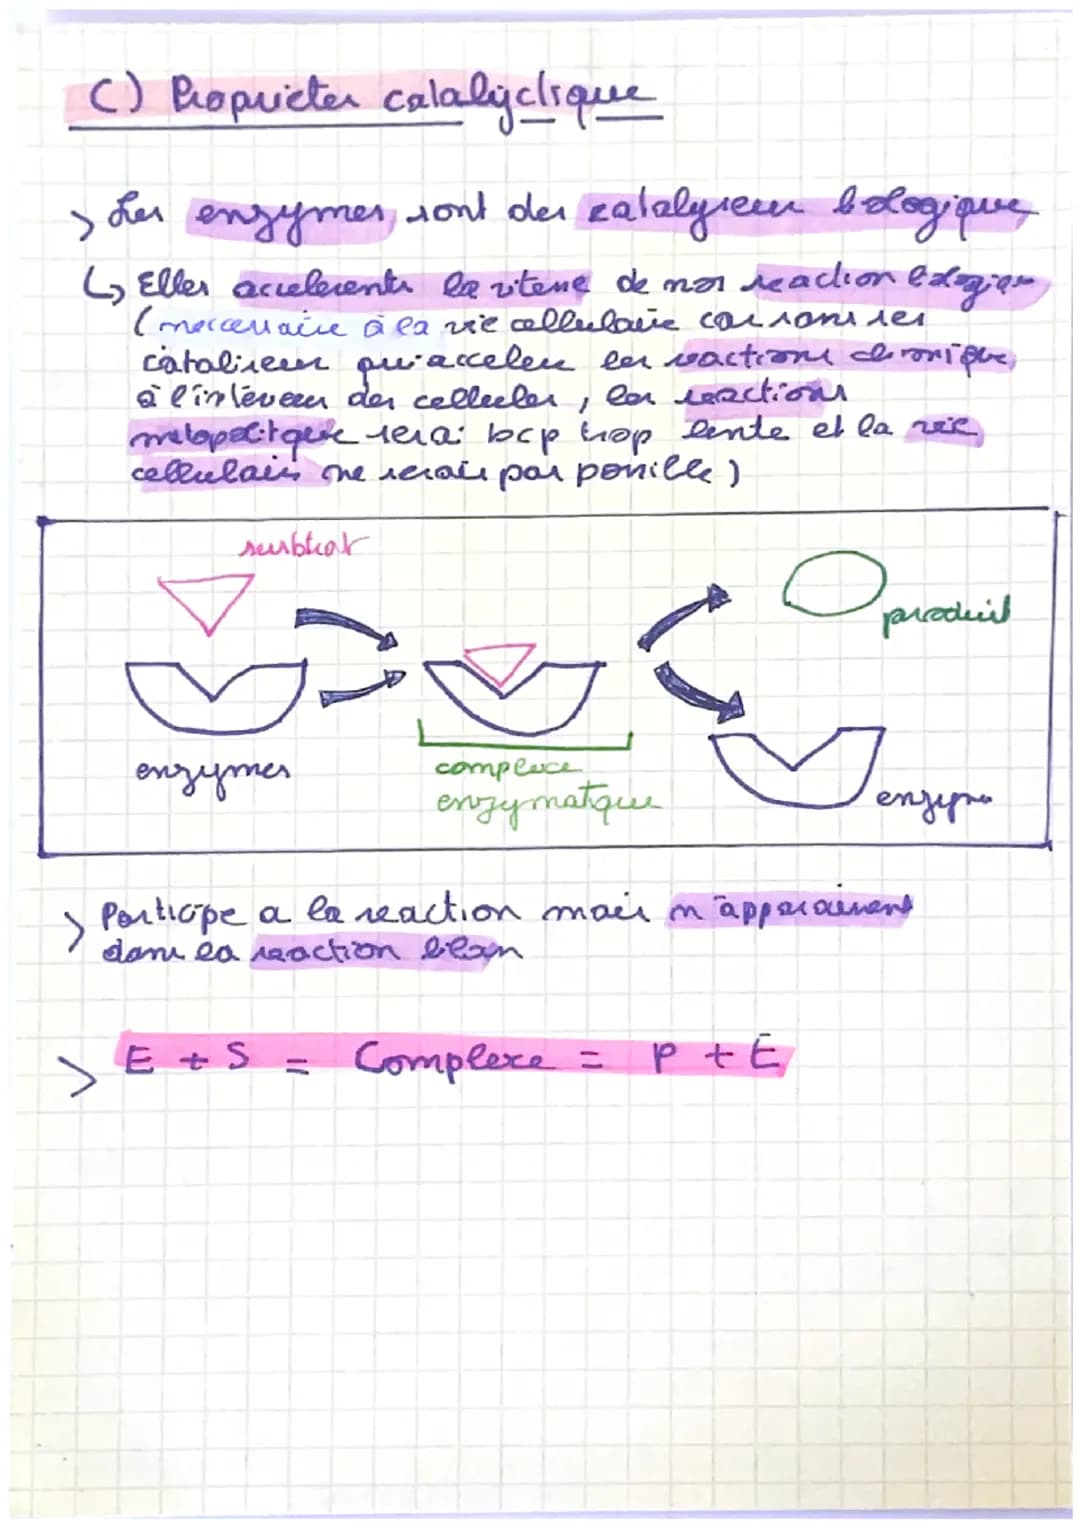 C) Proprieter catalyclique
> Les enzymes sont des catalyseur biologique
↳ Elles accelerents la vitesse de nos reaction biologique
(necessaire à la vie cellulaire car sans ses
cataliseur qui accelere les reactions chimique
à l'intérieur des cellules, les reactions
metapolitque serai bcp trop lente et la vie
cellulaire ne serais pas possible)
surbtrat
produit
enzymes
complexe
enzymatique
enzyme
> Participe a la reaction mais n'apparaissent
dans la reaction bilan
> E + S = Complexe = P + E